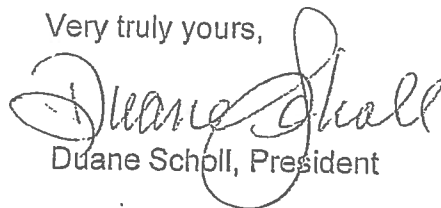 Very truly yours,
Duane Scholl
Duane Scholl, President